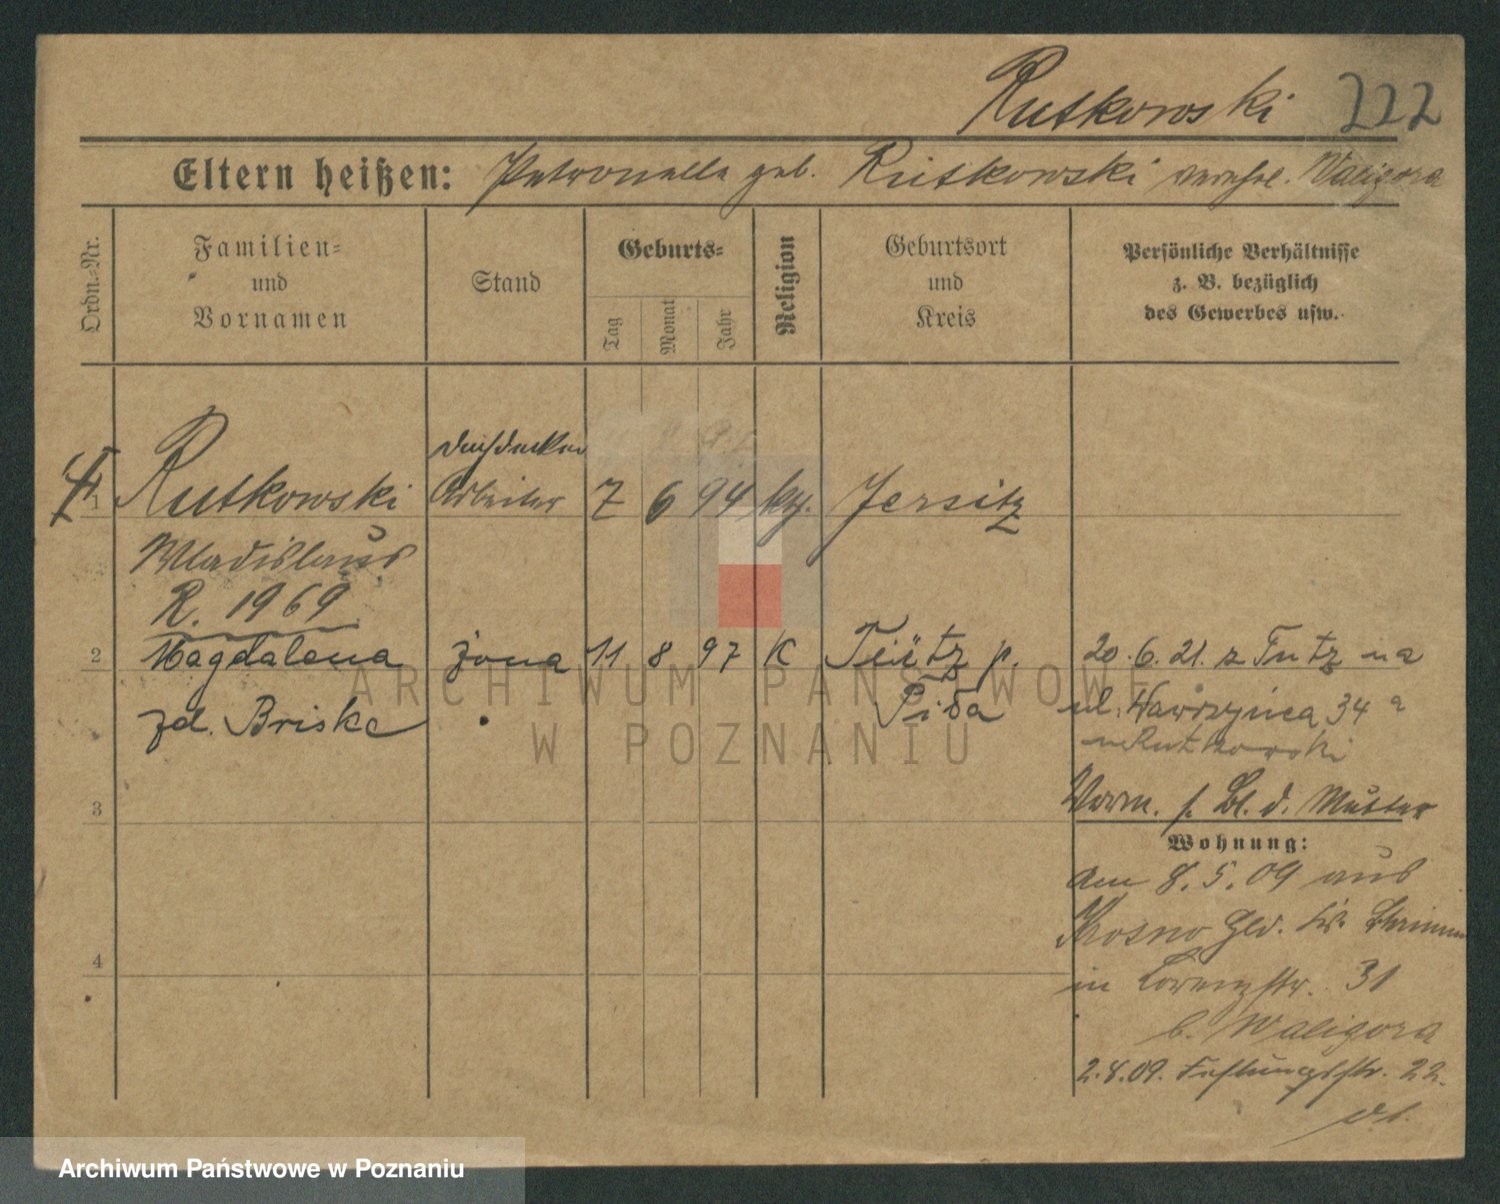 Rutkowski 222
Eltern heißen: Petronella geb. Rutkowski verehel. Waligora
Ordn.-Nr.
Familien-
und
Vornamen
Stand
Geburts-
Tag
Monat
Jahr
Religion
Geburtsort
und
Kreis
Persönliche Verhältnisse
z. B. bezüglich
des Gewerbes usw.
Dachdecker
1 Rutkowski Arbeiter 7 6 94 Jersitz
Wladislaus
R. 1969
2 Magdalena żona 11 8 97 K Tütz p. 20.6.21. z Tutz na
zd. Briske Piła ul. Wawrzyńca 34 a
Rutkowski
3 Vorm. s. Bl. d. Mutter
Wohnung:
am 8.5.09 aus
Krosno
4
in Lorenzstr. 31
b. Waligora
2.8.09. Festungsstr. 22.
ARCHIWUM PAŃSTWOWE
W POZNANIU
Archiwum Państwowe w Poznaniu